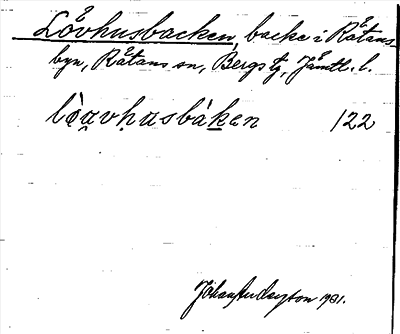 Lövhusbacken, backe i Råtans-
byn, Råtans sn, Bergs tg, Jämtl. l.
lòa̯vḥusbàken 122
Johan Anderzson 1931.